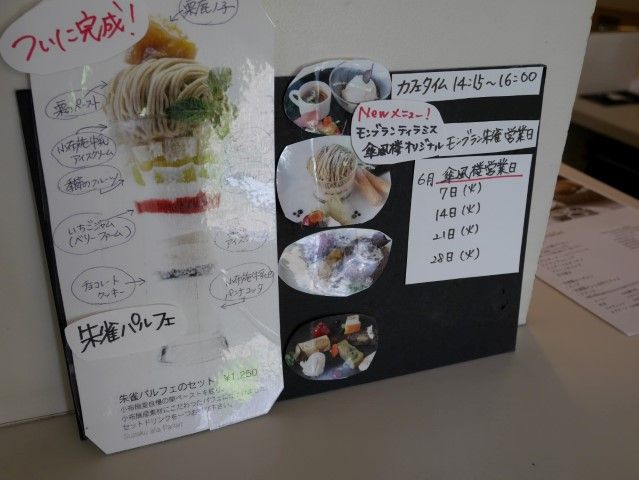 ついに完成!
栗のペースト
小布施牛乳
アイスクリーム
季節のフルーツ
いちごジャム
(ベリーファーム)
アイス
チョコレート
クッキー
小布施牛乳の
パンナコッタ
朱雀パルフェ
朱雀パルフェのセット ¥1,250
セットドリンクを一つお
カフェタイム 14:15〜16:00
Newメニュー!
モンブランティラミス
傘風楼オリジナル
モンブラン朱雀 営業日
6月 傘風楼営業日
7日(火)
14日(火)
21日(火)
28日(火)